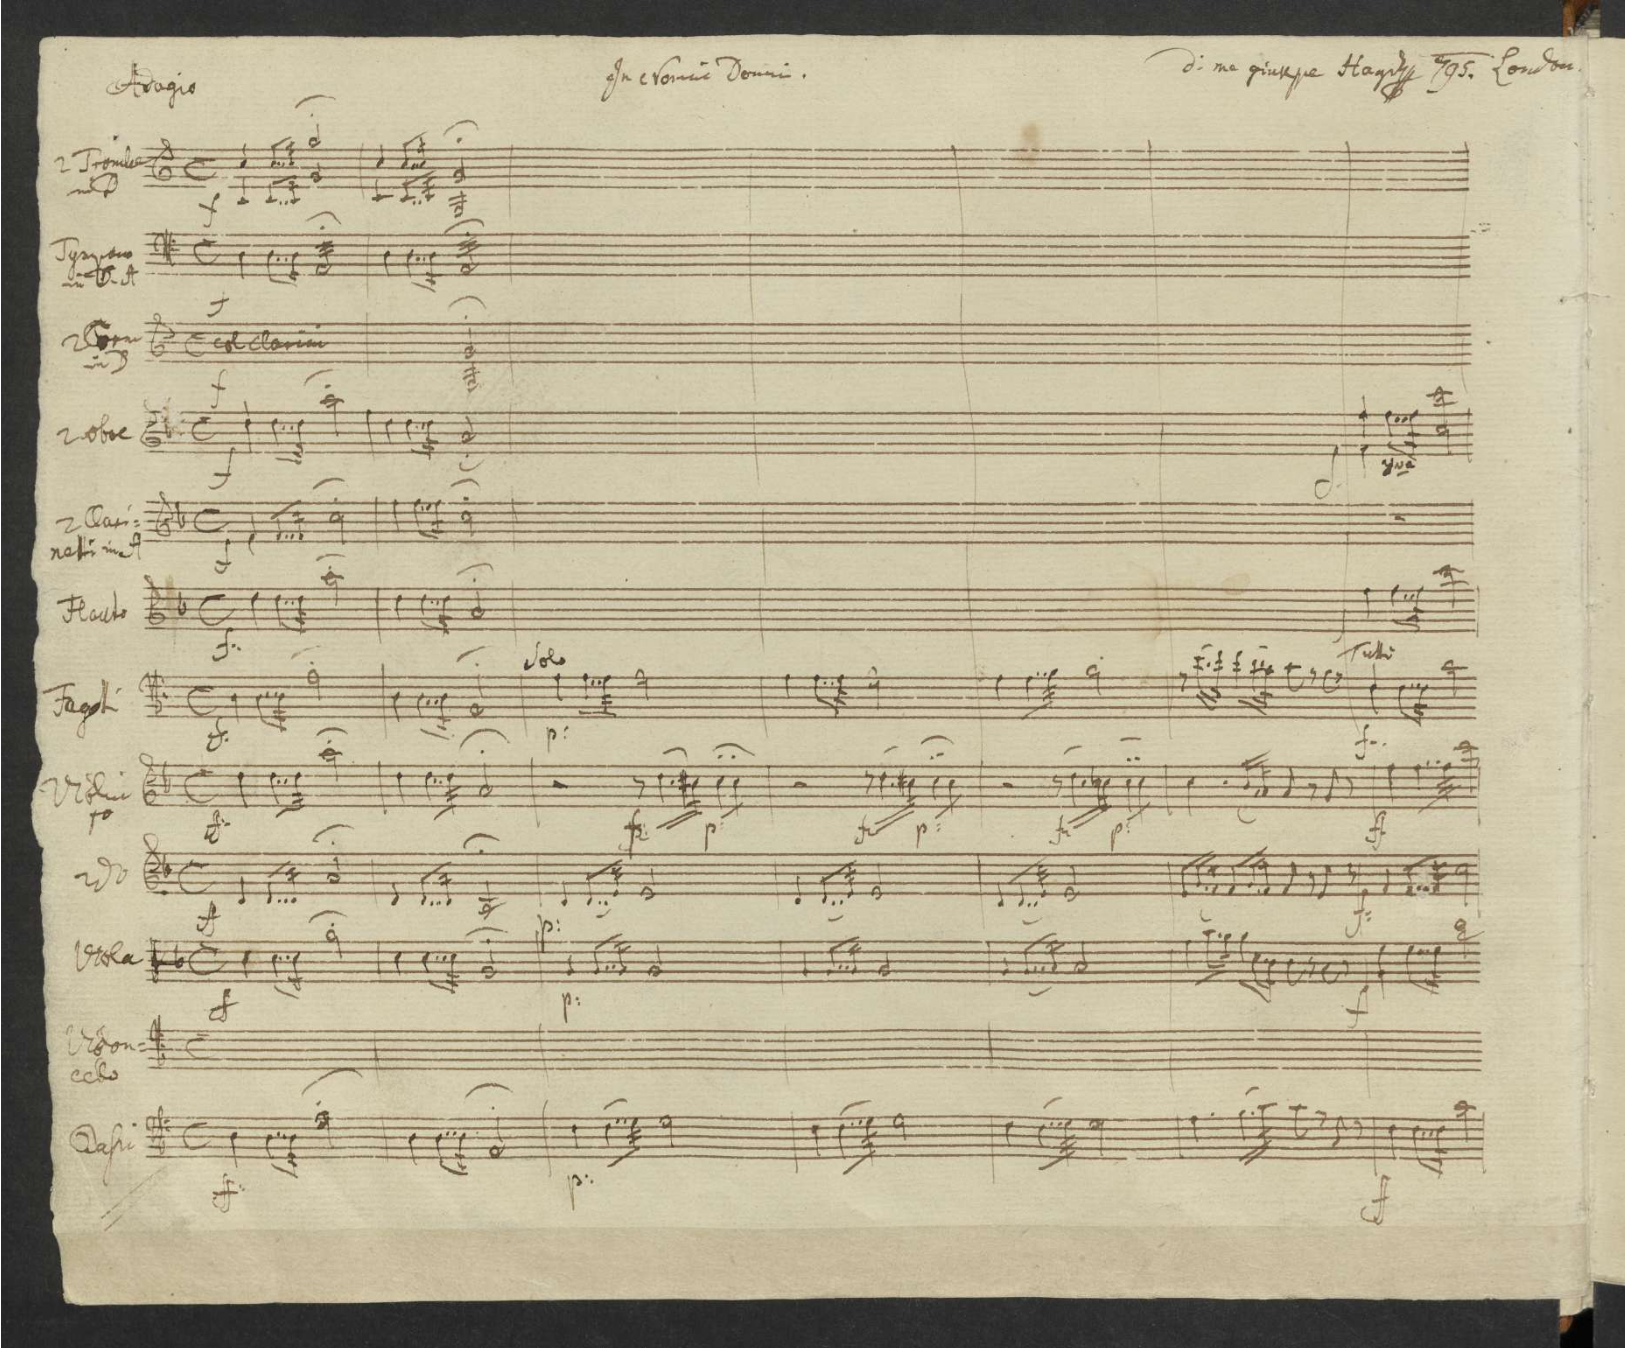 Adagio
In Nomine Domini.
di me giuseppe Haydn 795. London.
2 Trombe
in D
f
Tympano
in D. A
f
2 Corni
in D
col clarini
f
2 oboe
f
f
2 Clari=
netti in A
f
Flauto
f.
Solo
Tutti
Fagotti
f.
p:
f.
Violini
f.
fz
p:
fz
p:
fz
p:
f
2do
f
p:
f:
Viola
f
p:
f
Violon=
cello
Bassi
f.
p:
f